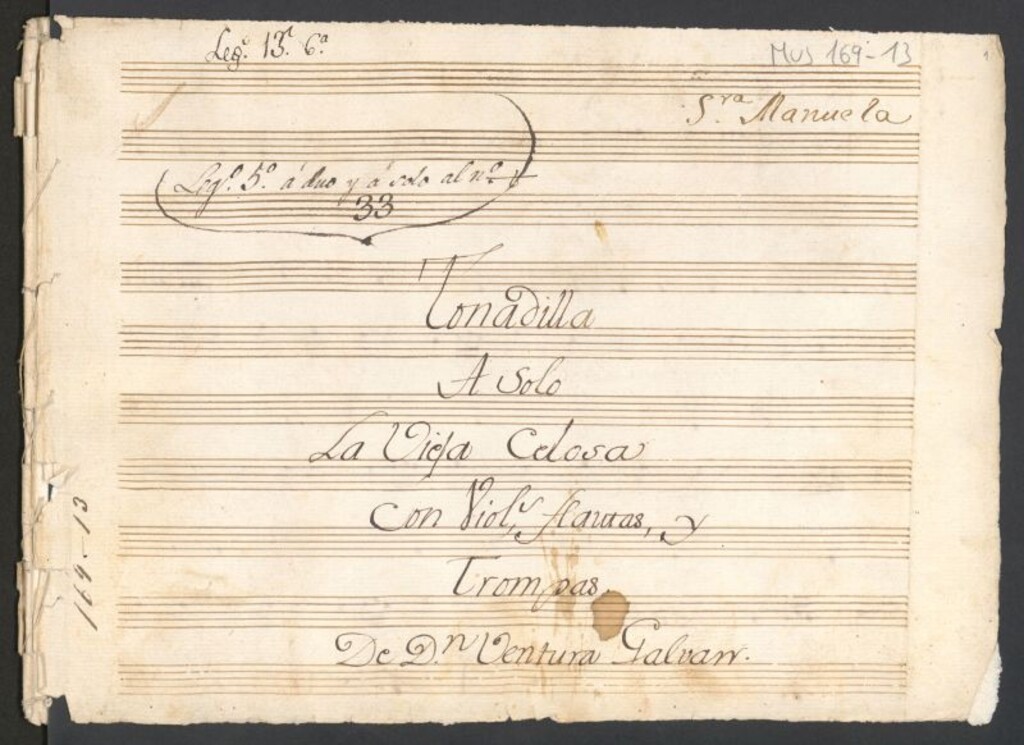 Leg.º 13.º 6.ª
MUS 169-13
1
S.ra Manuela
Leg.º 5.º á duo y á solo al nº
33
Tonadilla
A Solo
La Vieja Celosa
Con Viol.s, flautas, y
Trompas.
De D.n Ventura Galvan.
169-13